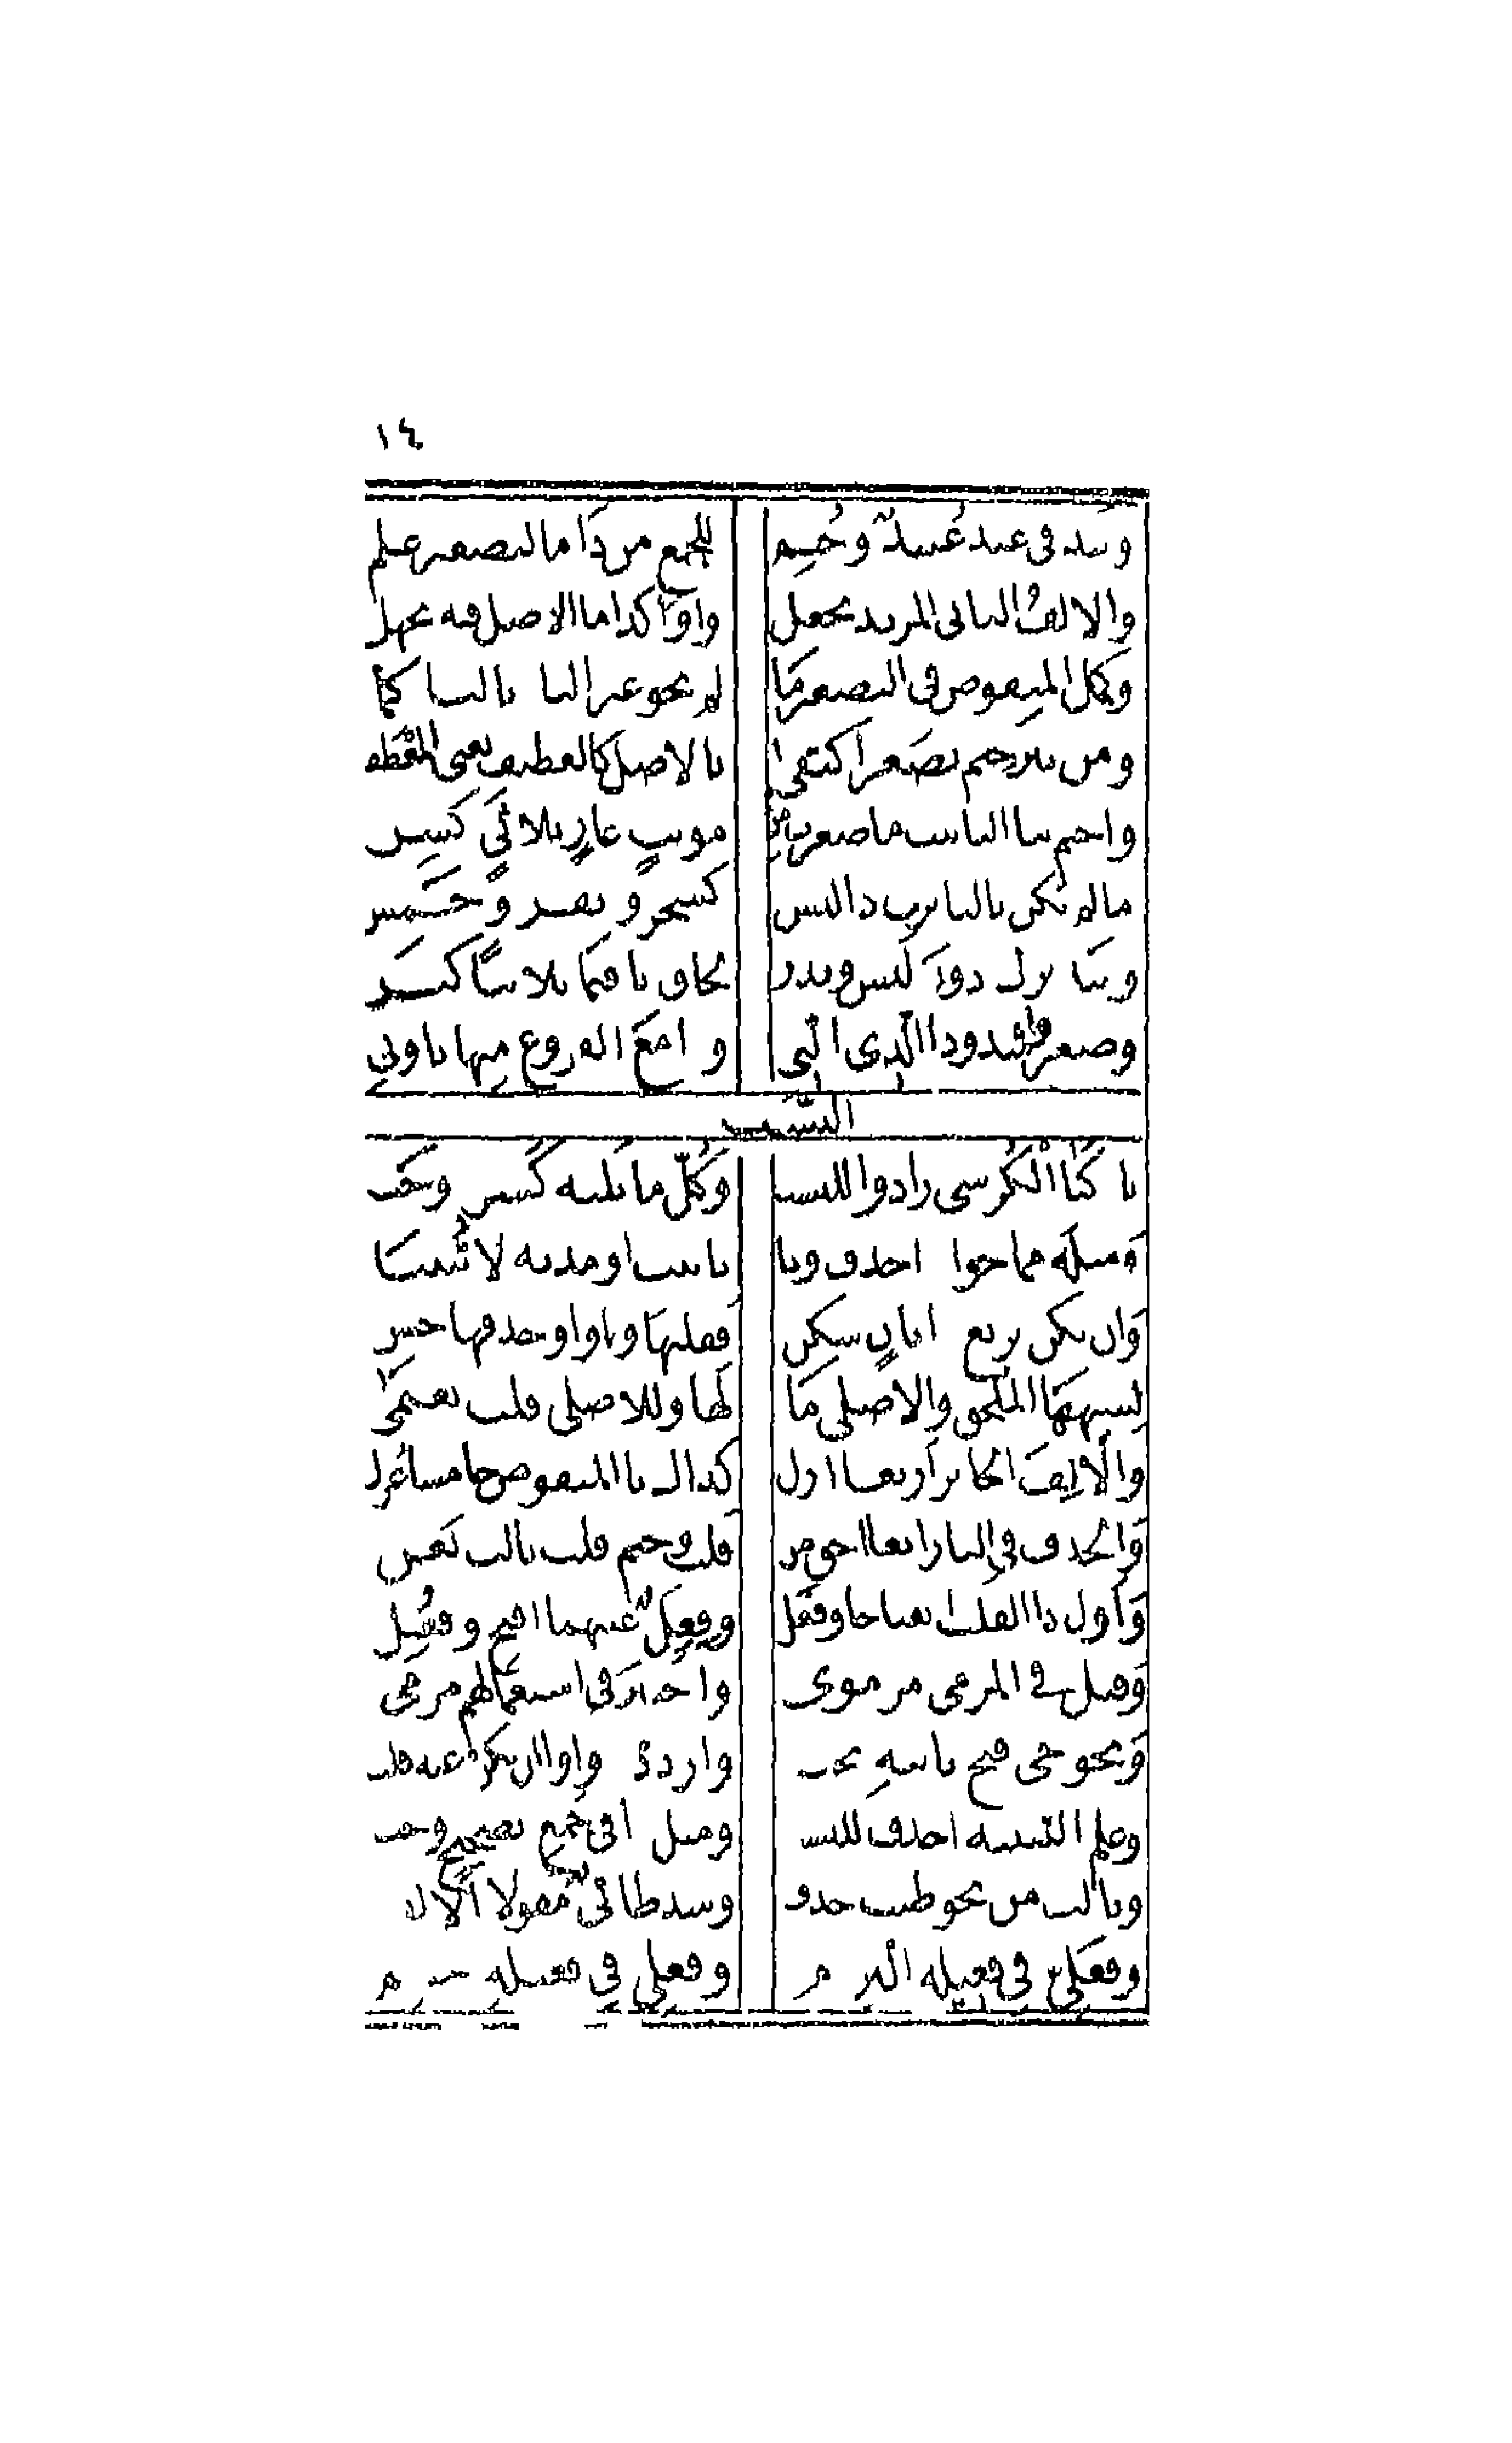 ١٤
وشذ في عيد عُييدٌ وحُتم للجمع من ذا ما لتصغير علم
والالف الثاني المزيد يجعل واوا كذا ما الاصل فيه يجهل
وكمل المنقوص في التصغير ما لم يحو غير التا ثالثا كما
ومن بترخيم يصغر اكتفى بالاصل كالعطيف يعني المعطفا
واختم بتا التانيث ما صغرت من مونث عار ثلاثي كسن
ما لم يكن بالتا يرى ذا لبس كشجر وبقر وخمس
وشذ ترك دون لبس وندر لحاق تا فيما ثلاثيا كثر
وصغروا شذوذا الذي التي وذا مع الفروع منها تا وتي
النسب
يا كيا الكرسي زادوا للنسب وكل ما تليه كسره وجب
ومثله مما حواه احذف وتا تانيث او مدته لا تثبتا
وان تكن تربع ذا ثان سكن فقلبها واوا وحذفها حسن
لشبهها الملحق والاصلي ما لها وللاصلي قلب يعتمى
والالف الحائز اربعا ازل كذاك يا المنقوص خامسا عزل
والحذف في اليا رابعا احق من قلب وحتم قلب ثالث يعن
واول ذا القلب انفتاحا وفعل وفعل عينهما افتح وفعل
وقيل في المرمي مرموي واختير في استعمالهم مرمي
ونحو حي فتح ثانيه يجب واردده واوا ان يكن عنه قلب
وعلم التثنيه احذف للنسب ومثل ذا في جمع تصحيح وجب
وثالث من نحو طيب حذف وشذ طائي مقولا بالالف
وفعلي في فعيله التزم وفعلي في فعيله حتم